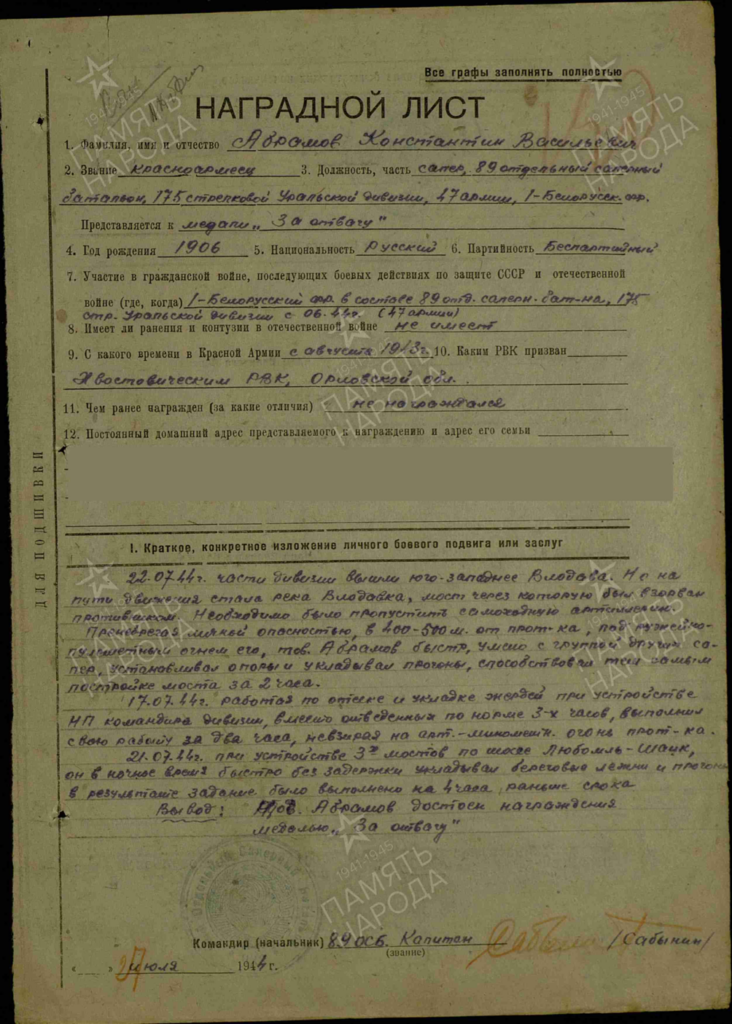 Все графы заполнять полностью
НАГРАДНОЙ ЛИСТ
1. Фамилия, имя и отчество Абрамов Константин Васильевич
2. Звание Красноармеец 3. Должность, часть сапер, 89 отдельный саперный
батальон, 175 стрелковой Уральской дивизии, 47 армии, 1-Белорусск. фр.
Представляется к медали „За отвагу"
4. Год рождения 1906 5. Национальность Русский 6. Партийность Беспартийный
7. Участие в гражданской войне, последующих боевых действиях по защите СССР и отечественной
войне (где, когда) 1-Белорусский фр. в составе 89 отд. саперн. бат-на, 175
стр. Уральской дивизии с 06.44г. (47 армии)
8. Имеет ли ранения и контузии в отечественной войне не имеет
9. С какого времени в Красной Армии с августа 1943г. 10. Каким РВК призван
Хвостовическим РВК, Орловской обл.
11. Чем ранее награжден (за какие отличия) не награждался
12. Постоянный домашний адрес представляемого к награждению и адрес его семьи
ДЛЯ ПОДШИВКИ
I. Краткое, конкретное изложение личного боевого подвига или заслуг
22.07.44г. части дивизии вышли юго-западнее Влодава. Но на
пути движения стала река Влодавка, мост через которую был взорван
противником. Необходимо было пропустить самоходную артиллерию.
Пренебрегая личной опасностью, в 400-500 м. от прот-ка, под ружейно-
пулеметным огнем его, тов. Абрамов быстр, умело с группой других са-
пер, устанавливал опоры и укладывал прогоны, способствовал тем самым
постройке моста за 2 часа.
17.07.44г. работая по отеске и укладке жердей при устройстве
НП командира дивизии, вместо отведенных по норме 3-х часов, выполнил
свою работу за два часа, невзирая на арт.-миномет. огонь прот-ка.
21.07.44г. при устройстве 3х мостов по шоссе Любомль-Шацк,
он в ночное время быстро без задержки укладывал береговые лежни и прогоны
в результате задание было выполнено на 4 часа раньше срока
Вывод: Тов. Абрамов достоен награждения
медалью „За отвагу"
Командир (начальник) 89 ОСБ. Капитан /Сабынин/
(звание)
„27" июля 1944 г.
ПАМЯТЬ НАРОДА
1941-1945